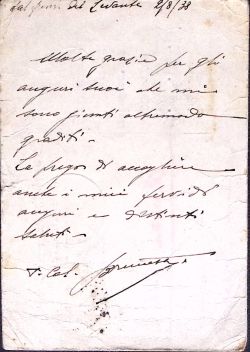 del Levante 2/8/38
Molte grazie per gli
auguri Suoi che mi
sono giunti oltremodo
graditi.
La prego di accogliere
anche i miei fervidi
auguri e distinti
saluti.
T. Col.